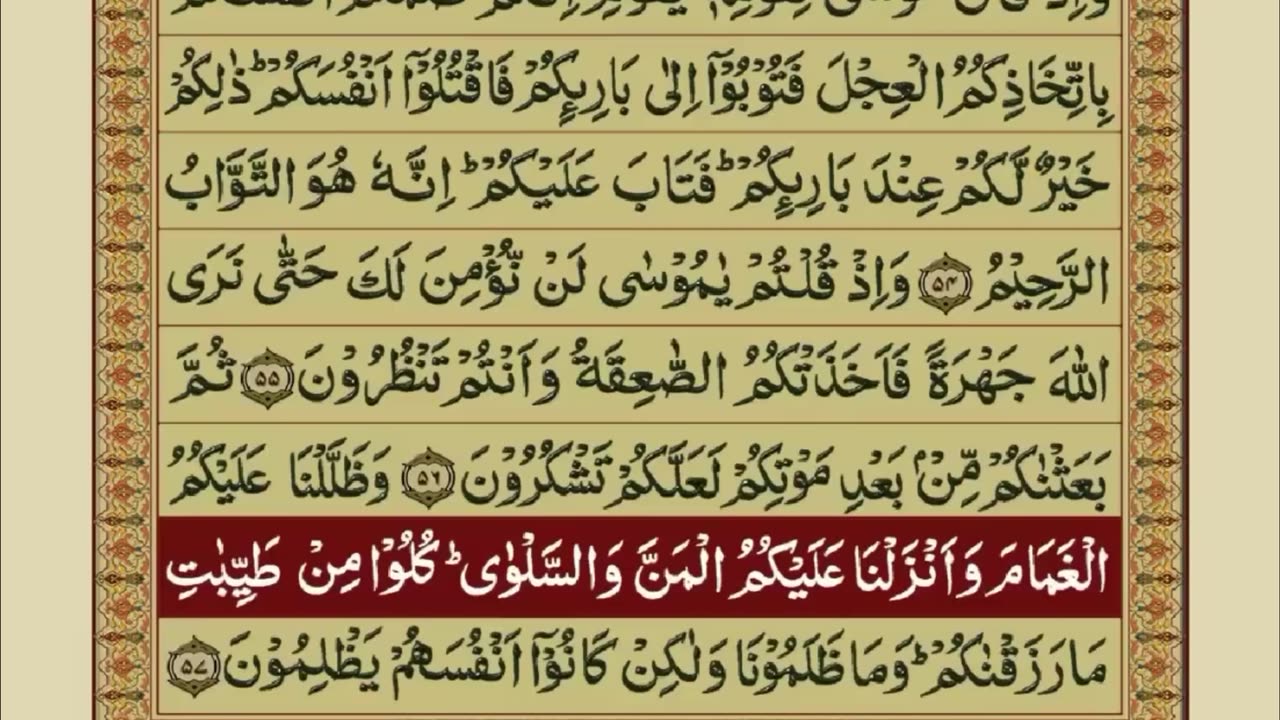 بِاتِّخَاذِكُمُ الْعِجْلَ فَتُوْبُوْۤا اِلٰى بَارِىِٕكُمْ فَاقْتُلُوْۤا اَنْفُسَكُمْ ؕ ذٰلِكُمْ
خَيْرٌ لَّكُمْ عِنْدَ بَارِىِٕكُمْ ؕ فَتَابَ عَلَيْكُمْ ؕ اِنَّهٗ هُوَ التَّوَّابُ
الرَّحِيْمُ ۝۵۴ وَاِذْ قُلْتُمْ يٰمُوْسٰى لَنْ نُّؤْمِنَ لَكَ حَتّٰى نَرَى
اللهَ جَهْرَةً فَاَخَذَتْكُمُ الصّٰعِقَةُ وَاَنْتُمْ تَنْظُرُوْنَ ۝۵۵ ثُمَّ
بَعَثْنٰكُمْ مِّنْۢ بَعْدِ مَوْتِكُمْ لَعَلَّكُمْ تَشْكُرُوْنَ ۝۵۶ وَظَلَّلْنَا عَلَيْكُمُ
الْغَمَامَ وَاَنْزَلْنَا عَلَيْكُمُ الْمَنَّ وَالسَّلْوٰى ؕ كُلُوْا مِنْ طَيِّبٰتِ
مَا رَزَقْنٰكُمْ ؕ وَمَا ظَلَمُوْنَا وَلٰكِنْ كَانُوْۤا اَنْفُسَهُمْ يَظْلِمُوْنَ ۝۵۷